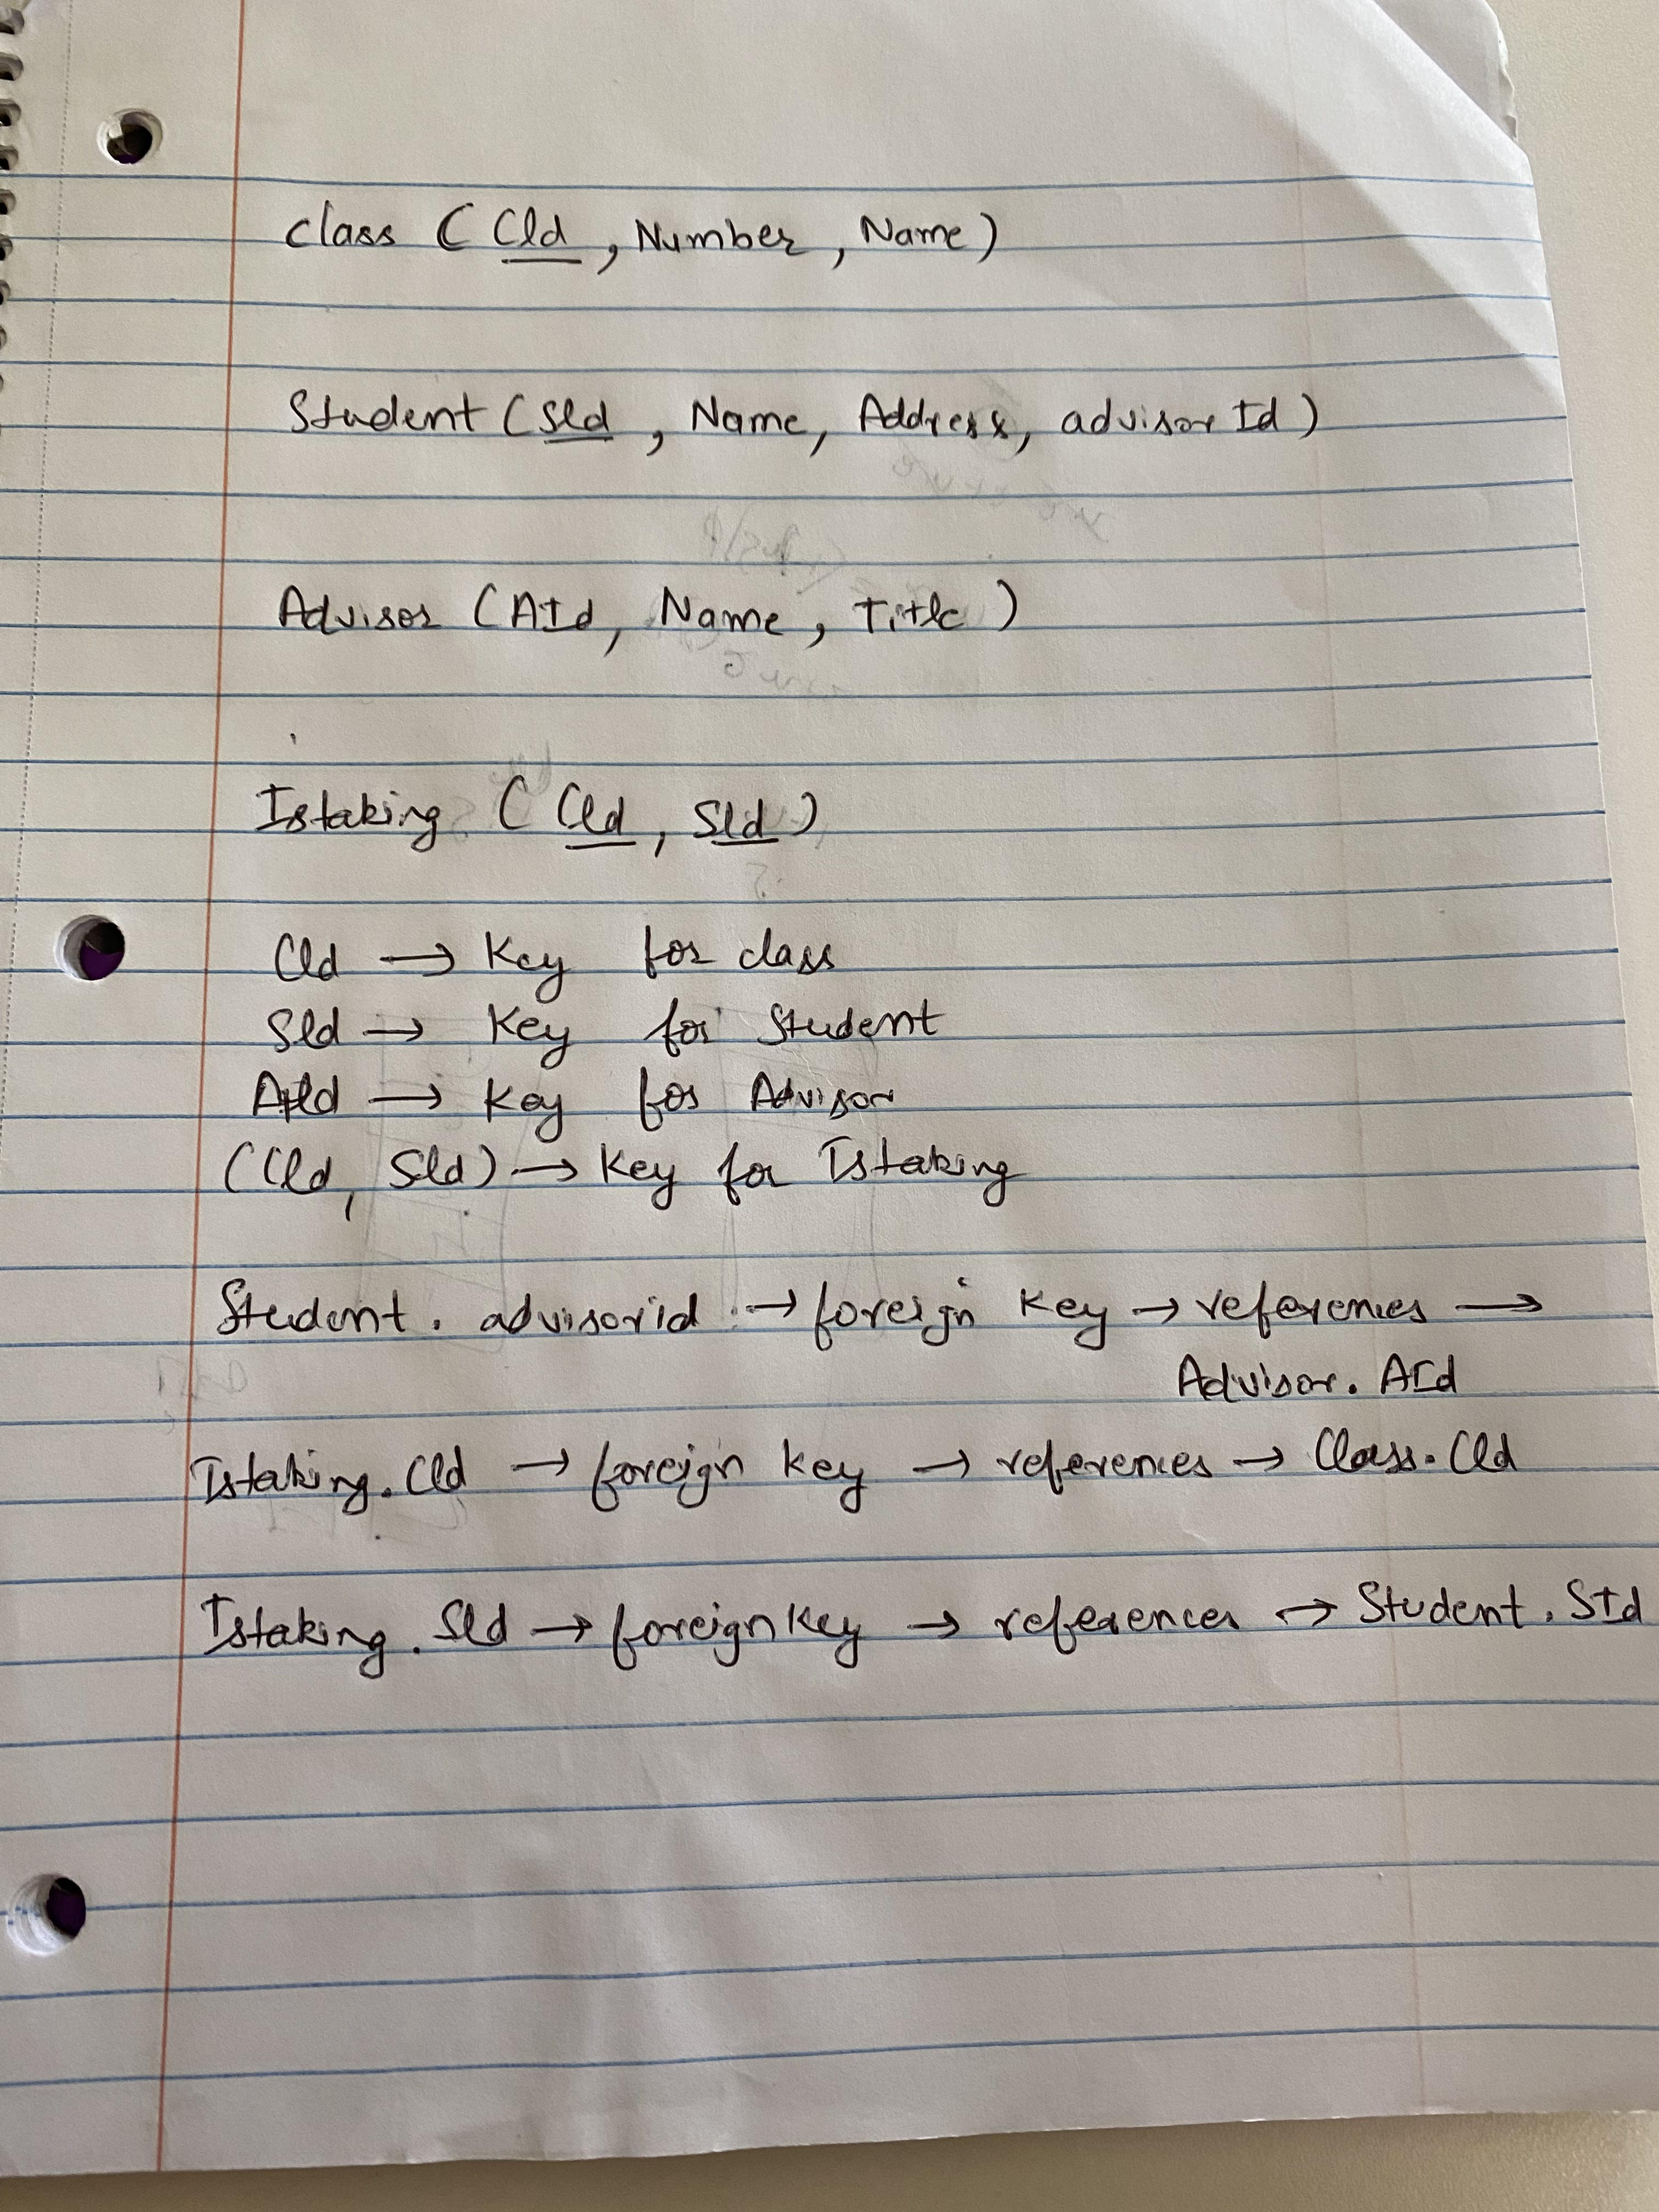 class ( CId , Number , Name )
Student ( SId , Name, Address, advisor Id )
Advisor ( AId, Name , Title )
Istaking ( CId , SId )
CId → Key for class
SId → Key for Student
AId → Key for Advisor
(CId, SId) → Key for Istaking
Student . advisorid → foreign Key → references →
Advisor. AId
Istaking. CId → foreign key → references → Class. CId
Istaking . SId → foreign Key → references → Student . SId